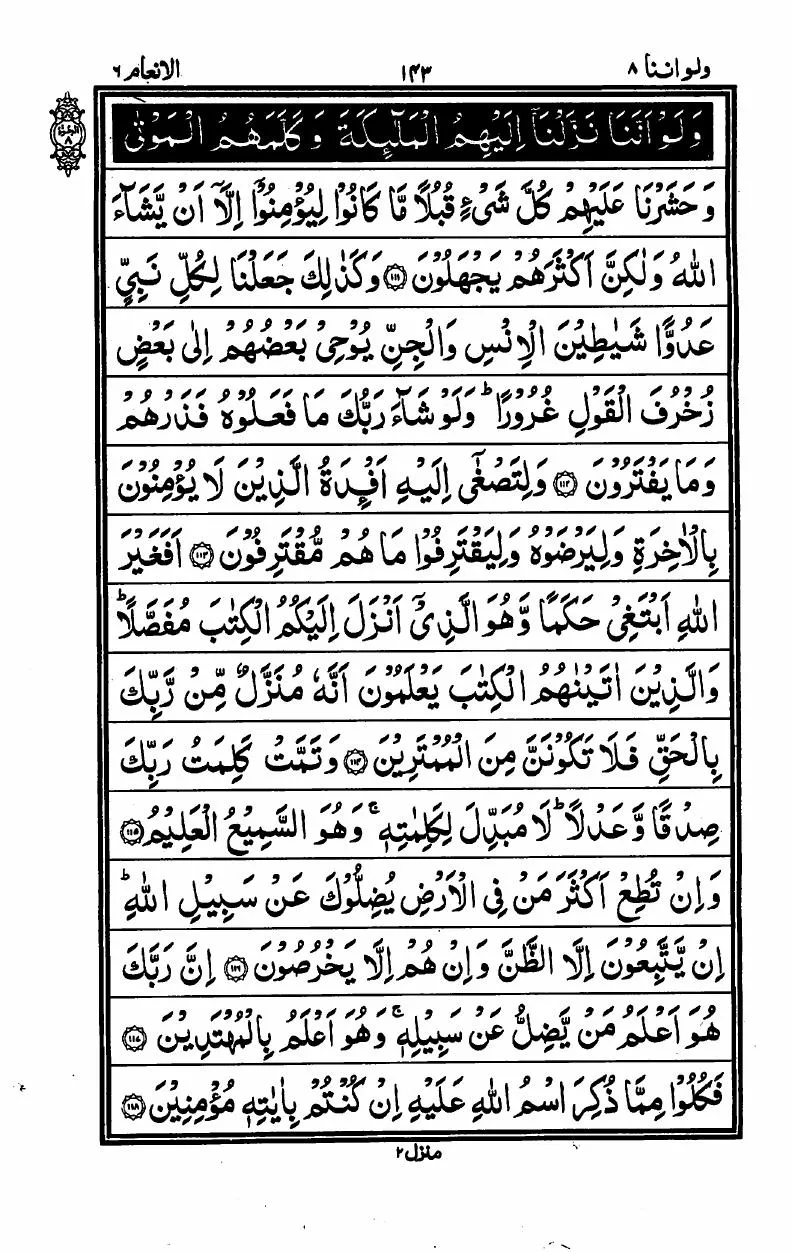 ولواننا ٨ ١٤٣ الانعام ٦
الجزء ٨
وَلَوْ اَنَّنَا نَزَّلْنَاۤ اِلَيْهِمُ الْمَلٰٓئِكَةَ وَكَلَّمَهُمُ الْمَوْتٰى
وَحَشَرْنَا عَلَيْهِمْ كُلَّ شَیْءٍ قُبُلًا مَّا كَانُوْا لِيُؤْمِنُوْۤا اِلَّاۤ اَنْ يَّشَآءَ
اللّٰهُ وَلٰكِنَّ اَكْثَرَهُمْ يَجْهَلُوْنَ ﴿١١١﴾ وَكَذٰلِكَ جَعَلْنَا لِكُلِّ نَبِيٍّ
عَدُوًّا شَيٰطِيْنَ الْاِنْسِ وَالْجِنِّ يُوْحِیْ بَعْضُهُمْ اِلٰى بَعْضٍ
زُخْرُفَ الْقَوْلِ غُرُوْرًا ؕ وَلَوْ شَآءَ رَبُّكَ مَا فَعَلُوْهُ فَذَرْهُمْ
وَمَا يَفْتَرُوْنَ ﴿١١٢﴾ وَلِتَصْغٰۤى اِلَيْهِ اَفْـِٕدَةُ الَّذِيْنَ لَا يُؤْمِنُوْنَ
بِالْاٰخِرَةِ وَلِيَرْضَوْهُ وَلِيَقْتَرِفُوْا مَا هُمْ مُّقْتَرِفُوْنَ ﴿١١٣﴾ اَفَغَيْرَ
اللّٰهِ اَبْتَغِیْ حَكَمًا وَّهُوَ الَّذِیْۤ اَنْزَلَ اِلَيْكُمُ الْكِتٰبَ مُفَصَّلًا ؕ
وَالَّذِيْنَ اٰتَيْنٰهُمُ الْكِتٰبَ يَعْلَمُوْنَ اَنَّهٗ مُنَزَّلٌ مِّنْ رَّبِّكَ
بِالْحَقِّ فَلَا تَكُوْنَنَّ مِنَ الْمُمْتَرِيْنَ ﴿١١٤﴾ وَتَمَّتْ كَلِمَتُ رَبِّكَ
صِدْقًا وَّعَدْلًا ؕ لَا مُبَدِّلَ لِكَلِمٰتِهٖ ۚ وَهُوَ السَّمِيْعُ الْعَلِيْمُ ﴿١١٥﴾
وَاِنْ تُطِعْ اَكْثَرَ مَنْ فِی الْاَرْضِ يُضِلُّوْكَ عَنْ سَبِيْلِ اللّٰهِ ؕ
اِنْ يَّتَّبِعُوْنَ اِلَّا الظَّنَّ وَاِنْ هُمْ اِلَّا يَخْرُصُوْنَ ﴿١١٦﴾ اِنَّ رَبَّكَ
هُوَ اَعْلَمُ مَنْ يَّضِلُّ عَنْ سَبِيْلِهٖ ۚ وَهُوَ اَعْلَمُ بِالْمُهْتَدِيْنَ ﴿١١٧﴾
فَكُلُوْا مِمَّا ذُكِرَ اسْمُ اللّٰهِ عَلَيْهِ اِنْ كُنْتُمْ بِاٰيٰتِهٖ مُؤْمِنِيْنَ ﴿١١٨﴾
منزل ٢